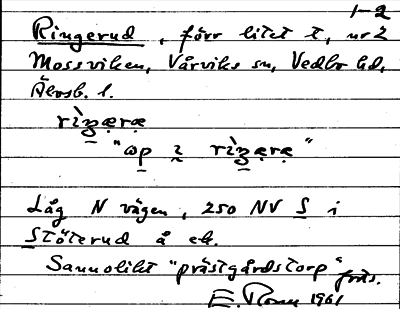 1-2
Ringerud, förr litet t, nr 2
Mossviken, Vårviks sn, Vedbo hd,
Älvsb. l.
rìŋæræ
"ɷp i rìŋæræ"
Låg N vägen, 250 NV S i
Stöterud å ek.
Sannolikt "prästgårdstorp"
E. 1961